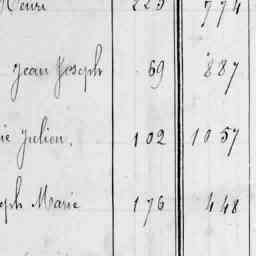 Henri 225 774
Jean Joseph 69 887
ie Julien, 102 1057
eph Marie 176 448